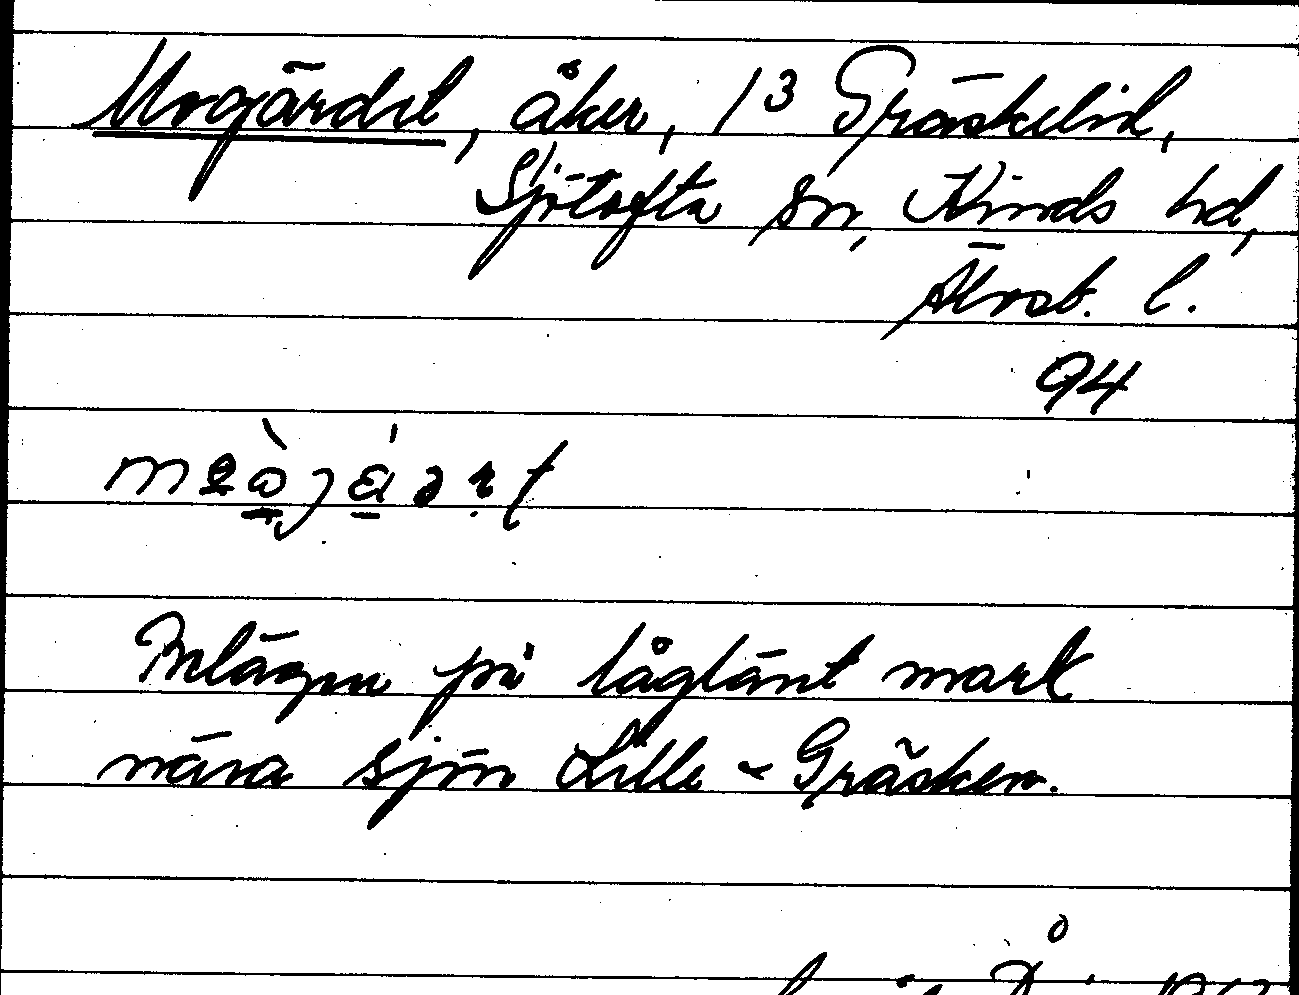 Mogärdet, åker, 1 3 Gräskelid,
Sjötofta sn, Kinds hd,
Älvsb. l.
94
Belägen på låglänt mark
nära sjön Lilla-Gräsken.